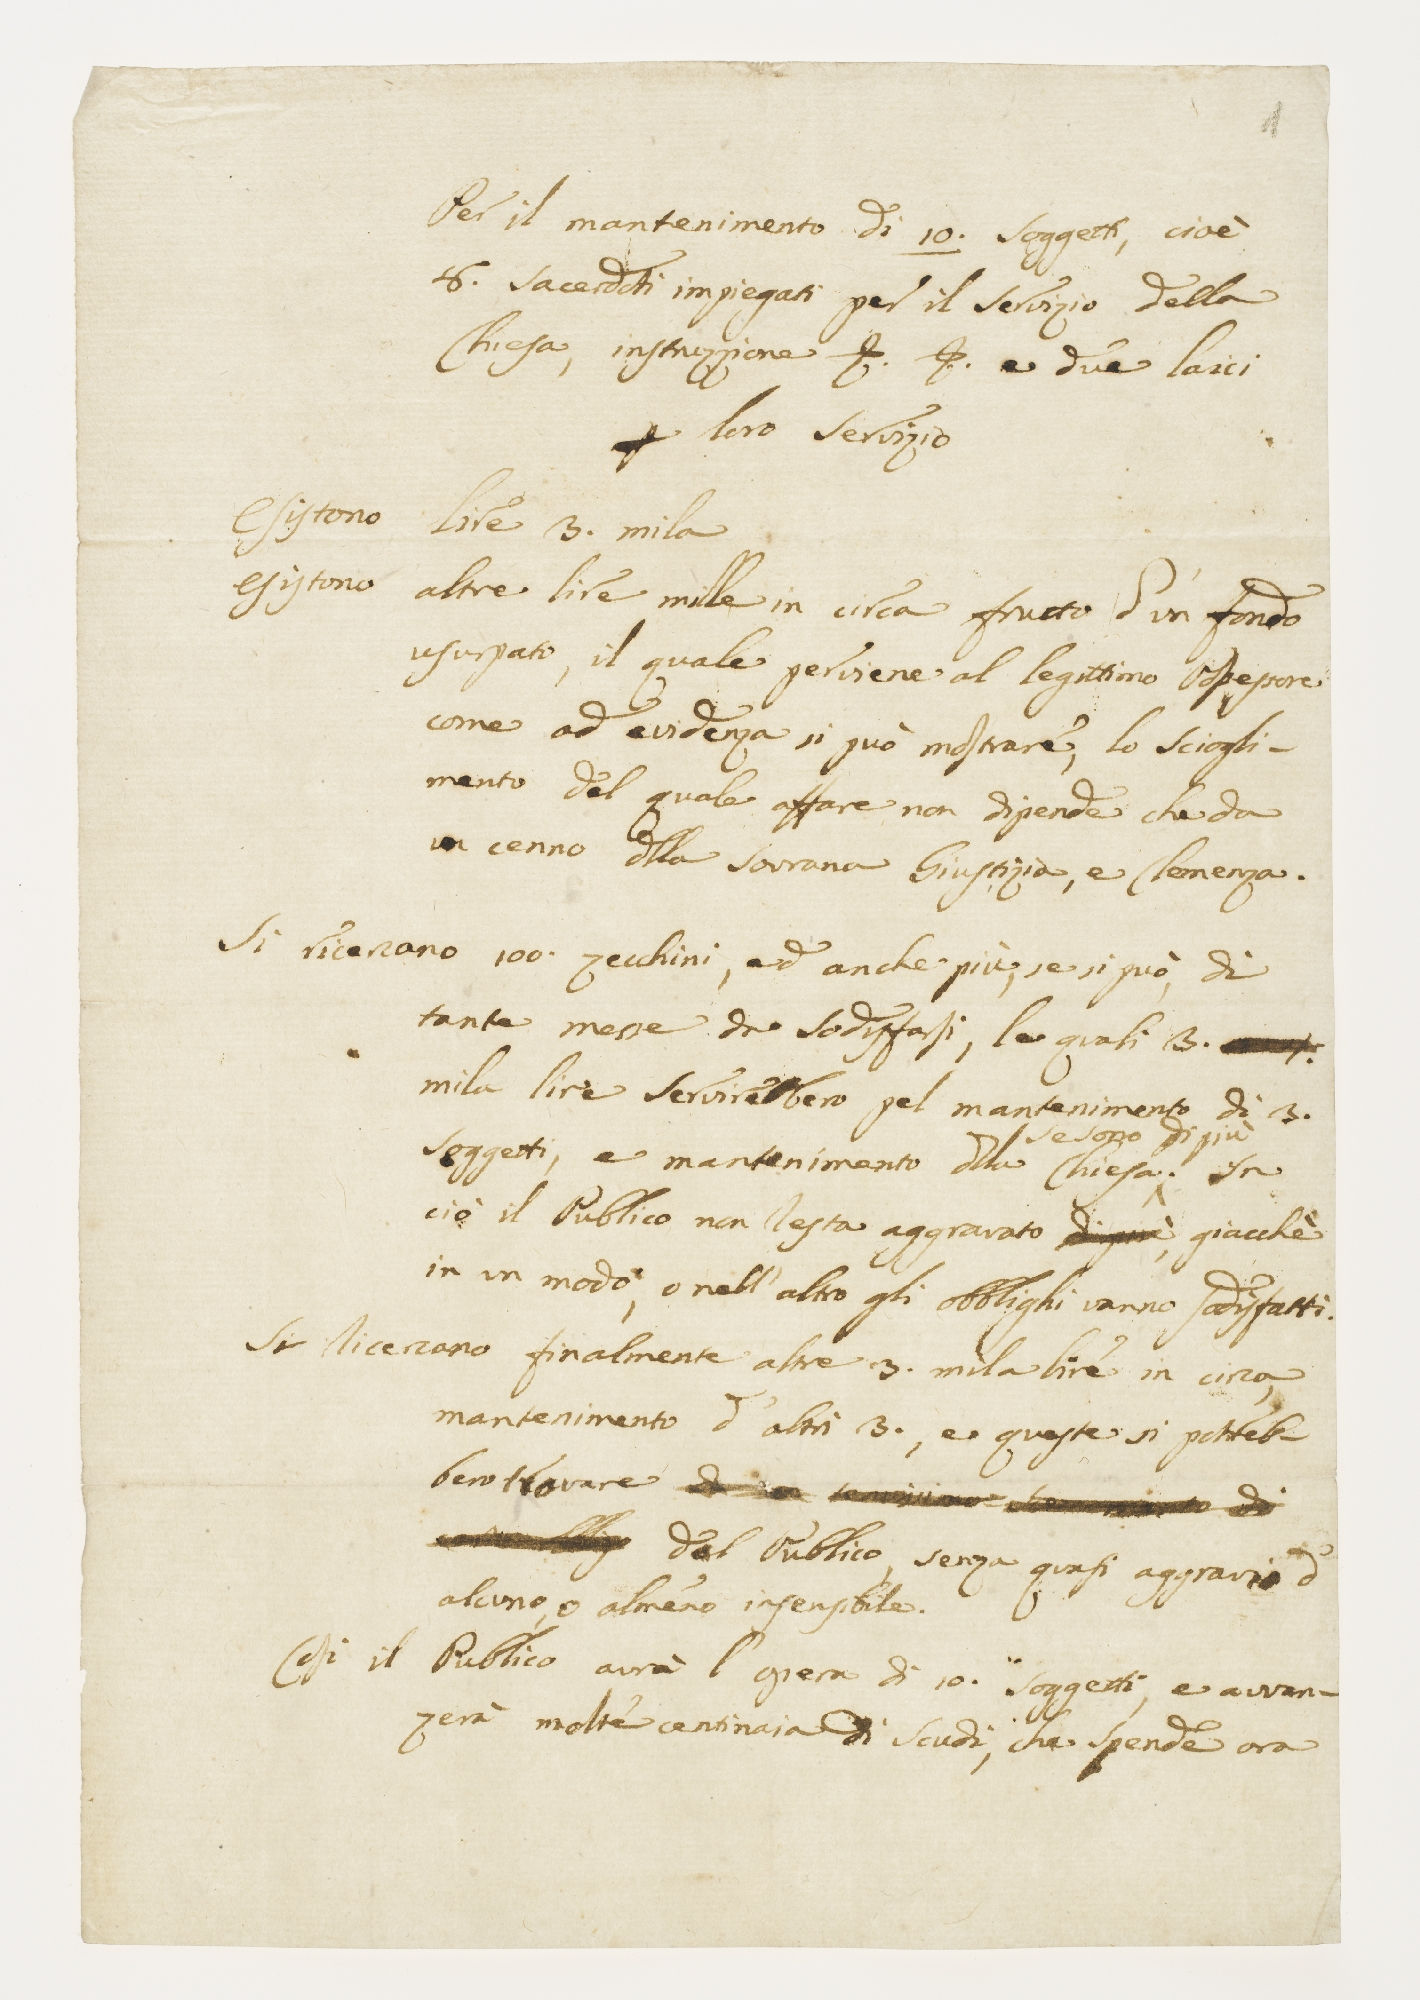 1
Per il mantenimento di 10. soggetti, cioè
8. sacerdoti impiegati per il servizio della
Chiesa, instruzzione &. &. e due laici
p loro servizio
Esistono lire 3. mila
esistono altre lire mille in circa frutto d'un fondo
usurpato, il quale perviene al legittimo possessore
come ad evidenza si può mostrare, lo sciogli-
mento del quale affare non dipende che da
un cenno della sovrana Giustizia, e Clemenza.
Si ricercano 100. zecchini, ed anche più, se si può, di
tante messe da sodisfarsi, le quali 3.
mila lire servirebbero pel mantenimento di 3.
se sono di più
soggetti, e mantenimento dlla Chiesa. In
ciò il Publico non resta aggravato di più, giacchè
in un modo, o nell'altro gli obblighi vanno sodisfatti.
Si ricercano finalmente altre 3. mila lire in circa,
mantenimento d'altri 3., e queste si potreb-
bero trovare
dal Publico, senza quasi aggravio d'
alcuno, o almeno insensibile.
Così il Publico avrà l'opera di 10. soggetti, e avvan-
zerà molte centinaia di scudi, che spende ora